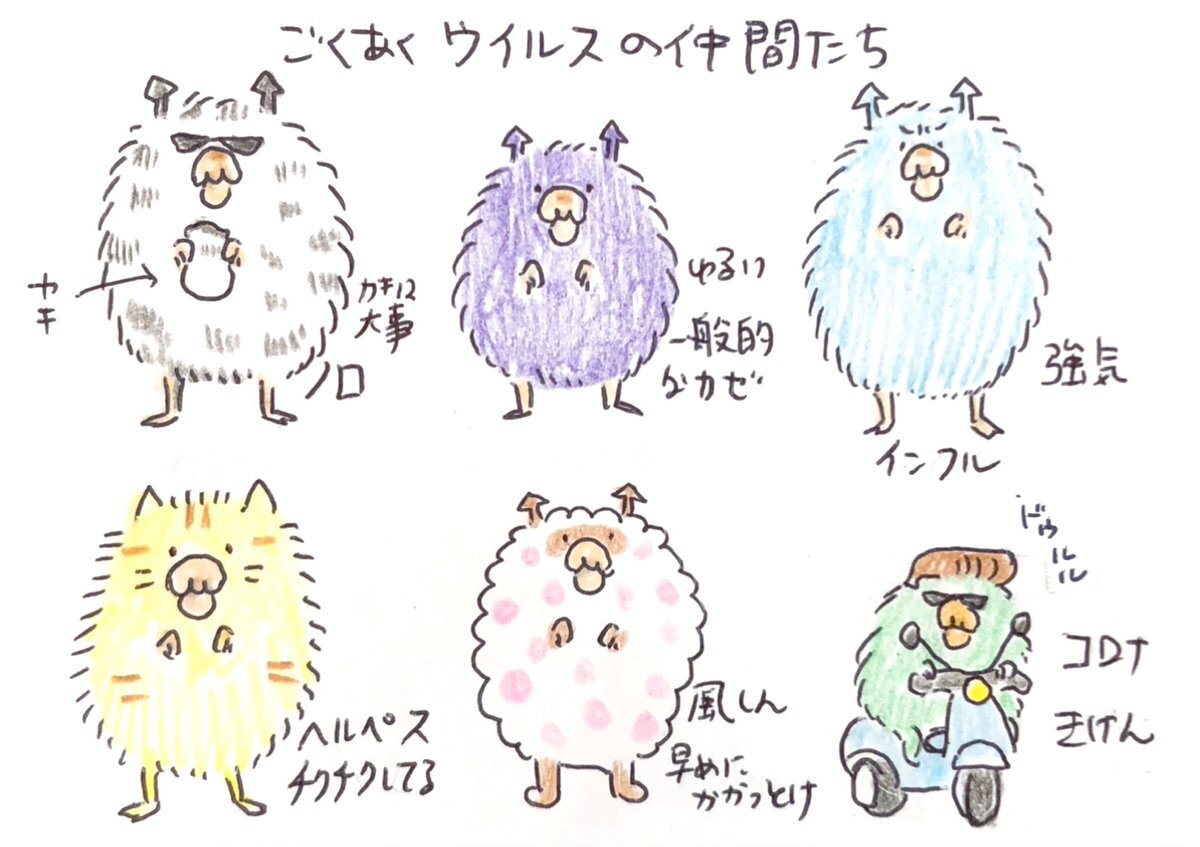 ごくあくウイルスの仲間たち
カキ
カキは
大事
ノロ
ゆるい
一般的
なカゼ
強気
インフル
ヘルペス
チクチクしてる
風しん
早めに
かかっとけ
ドゥルル
コロナ
きけん